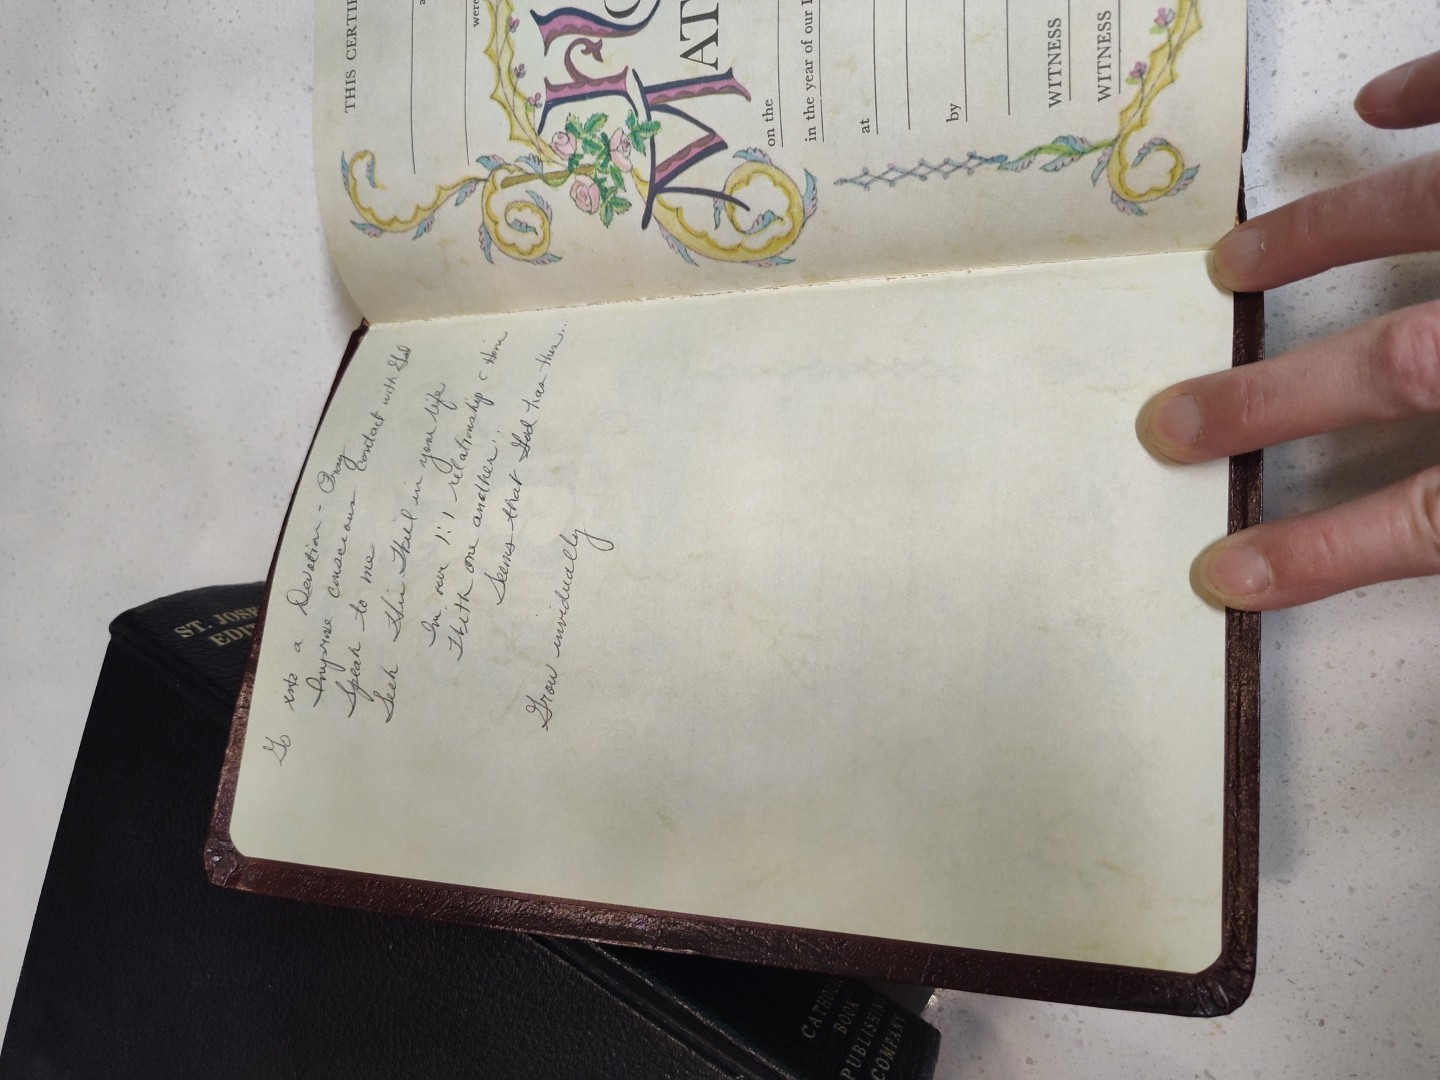 Go into a Devotion - Pray
Improve conscious contact with God
Speak to me
Seek His Will in your life
In our 1:1 relationship c Him
With one another..
Seems that God has this...
Grow individually
THIS CERTI
were
M
AT
on the
in the year of our
at
by
WITNESS
WITNESS
ST. JOSE
EDIT
CATHOL
BOOK
PUBLISHIN
COMPANY